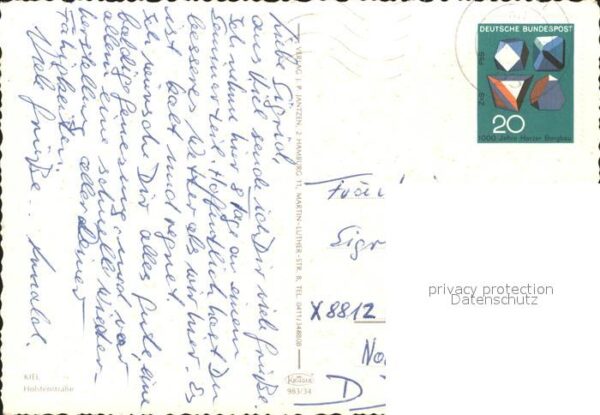 Liebe Sigrid,
aus Kiel sende ich Dir viele Grüße.
Ich nehme hier 8 Tage an einem
Seminar teil. Hoffentlich hast Du
besseres Wetter als wir hier. Es
ist kalt und regnet.
Ich wünsche Dir alles Gute, eine
baldige Genesung und vor
allem eine schnelle Wieder-
herstellung aller Deiner
Fähigkeiten.
Viele Grüße..
KIEL
Holstenstraße
VERLAG J. P. JANTZEN, 2 HAMBURG 11, MARTIN-LUTHER-STR. 8, TEL. 0411/348808
KRÜGER
983/34
DEUTSCHE BUNDESPOST
20
1000 Jahre Harzer Bergbau
Sigr
X8812
D
privacy protection
Datenschutz